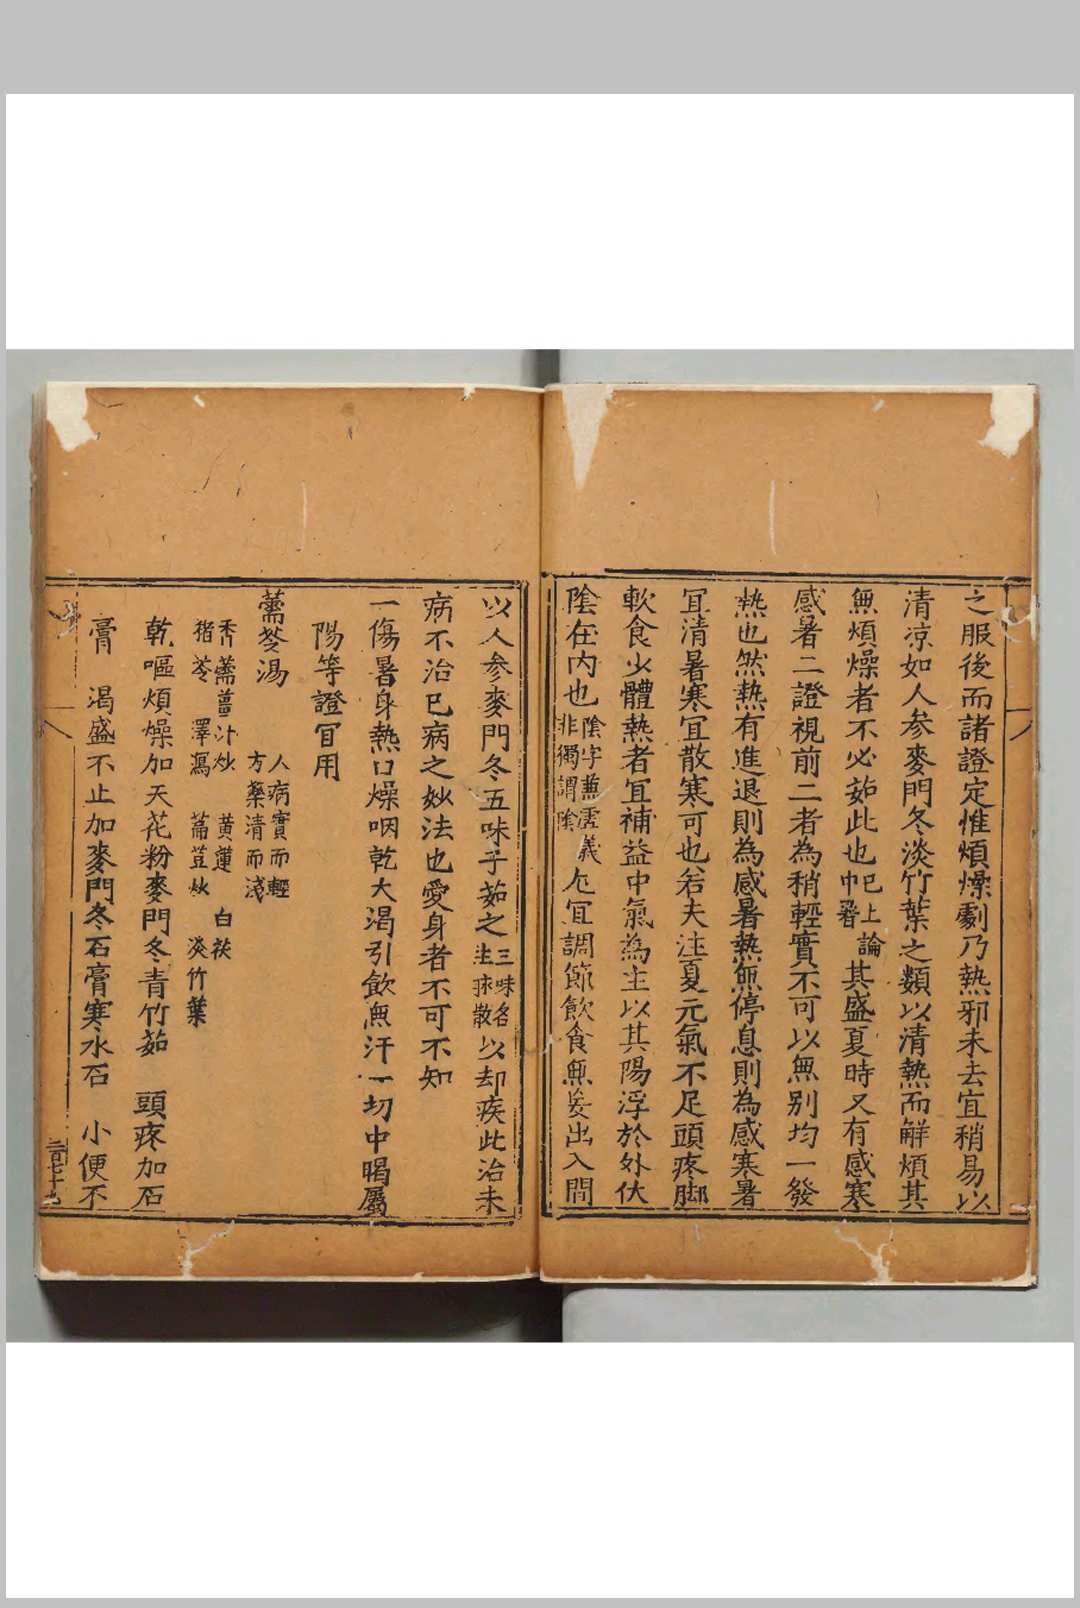 之服後而諸證定惟煩燥劇乃熱邪未去宜稍易以
清凉如人参麥門冬淡竹葉之類以清熱而解煩其
無煩燥者不必茹此也已上論中暑其盛夏時又有感寒
感暑二證視前二者為稍輕實不可以無別均一發
熱也然熱有進退則為感暑熱無停息則為感寒暑
宜清暑寒宜散寒可也若夫注夏元氣不足頭疼脚
軟食少體熱者宜補益中氣為主以其陽浮於外伏
陰在内也陰字兼虛義非獨謂陰凡宜調節飲食無妄出入間
以人參麥門冬五味子茹之三味名生脉散以却疾此治未
病不治已病之妙法也愛身者不可不知
一傷暑身熱口燥咽乾大渴引飲無汗一切中暍屬
陽等證冝用
薷苓湯 人病實而輕方藥清而淺
香薷薑汁炒 黄蓮 白茯
猪苓 澤瀉 萹荳炒 淡竹葉
乾嘔煩燥加天花粉麥門冬青竹茹 頭疼加石
膏 渴盛不止加麥門冬石膏寒水石 小便不